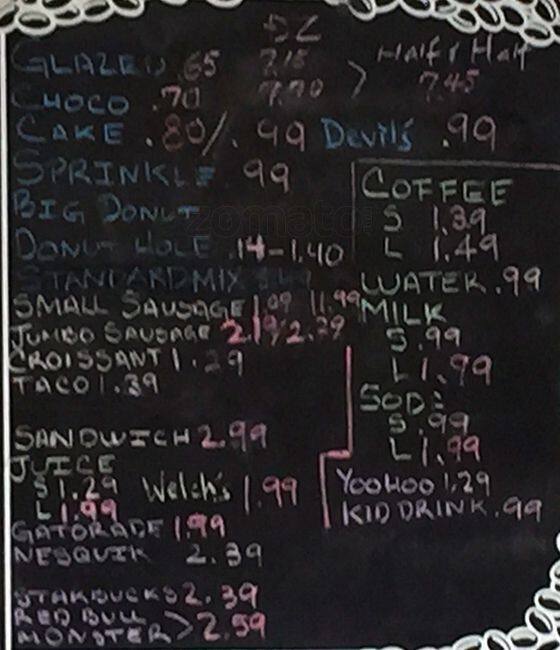 DZ
GLAZED .65 7.15 Half & Half
CHOCO .70 7.70 > 7.45
CAKE .80/.99 Devil's .99
SPRINKLE .99
BIG DONUT
DONUT HOLE .14-1.40
STANDARD MIX
SMALL SAUSAGE 1.09 11.99
JUMBO SAUSAGE 2.19/2.39
CROISSANT 1.29
TACO 1.39
SANDWICH 2.99
JUICE
S 1.29 Welch's 1.99
L 1.99
GATORADE 1.99
NESQUIK 2.39
STARBUCKS 2.39
RED BULL
MONSTER > 2.59
COFFEE
S 1.39
L 1.49
WATER .99
MILK
S .99
L 1.99
SODA
S .99
L 1.99
YOOHOO 1.29
KID DRINK .99
zomato